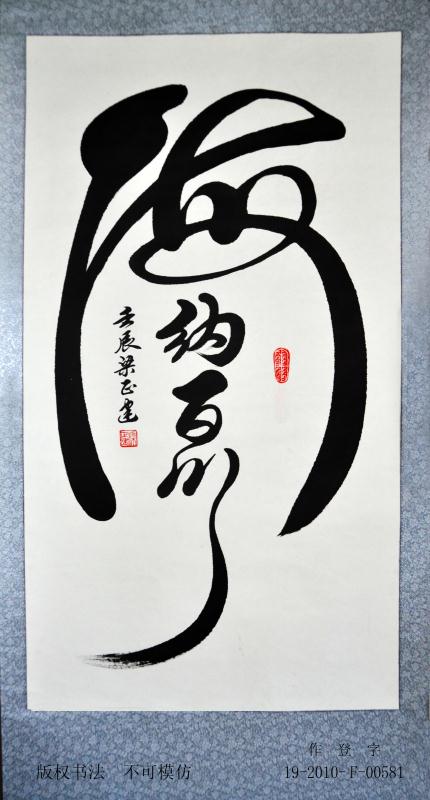 海纳百川
壬辰梁正建
作登字
版权书法 不可模仿
19-2010-F-00581